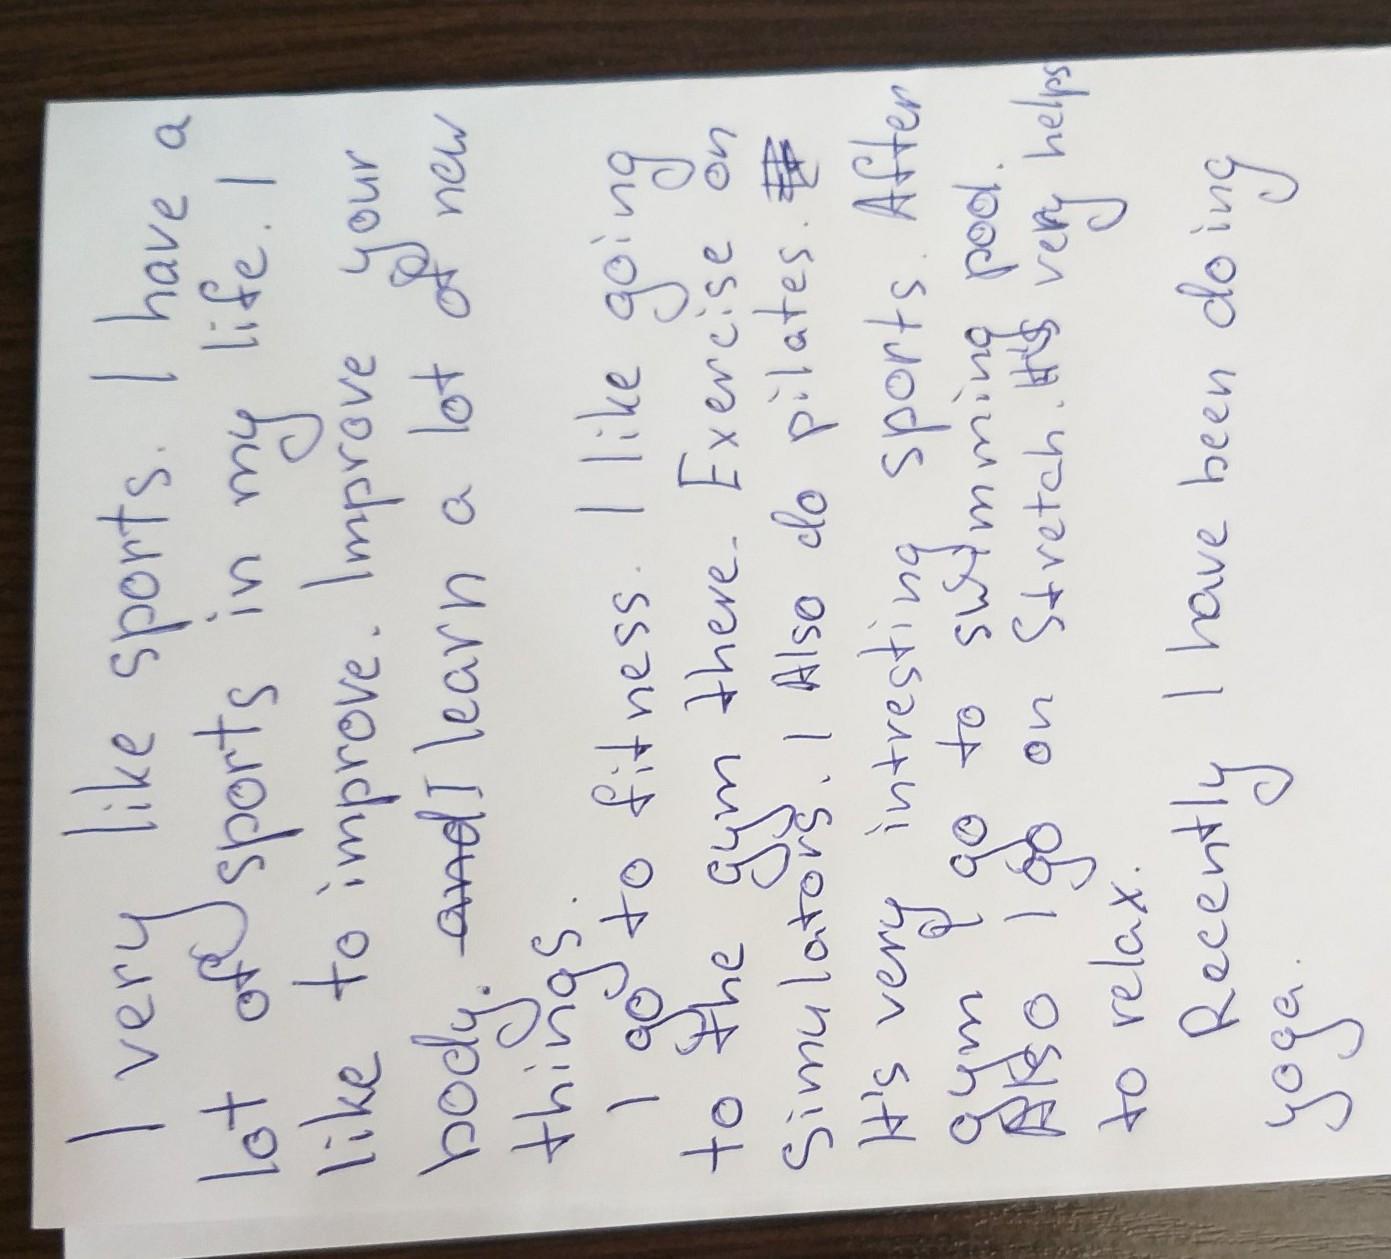 I very like sports. I have a
lot of sports in my life. I
like to improve. Improve your
body. and I learn a lot of new
things.
I go to fitness. I like going
to the gym there. Exercise on
Simulators. I Also do pilates.
It's very intresting sports. After
gym I go to swimming pool.
Also I go on Stretch. It's very helps
to relax.
Recently I have been doing
yoga.